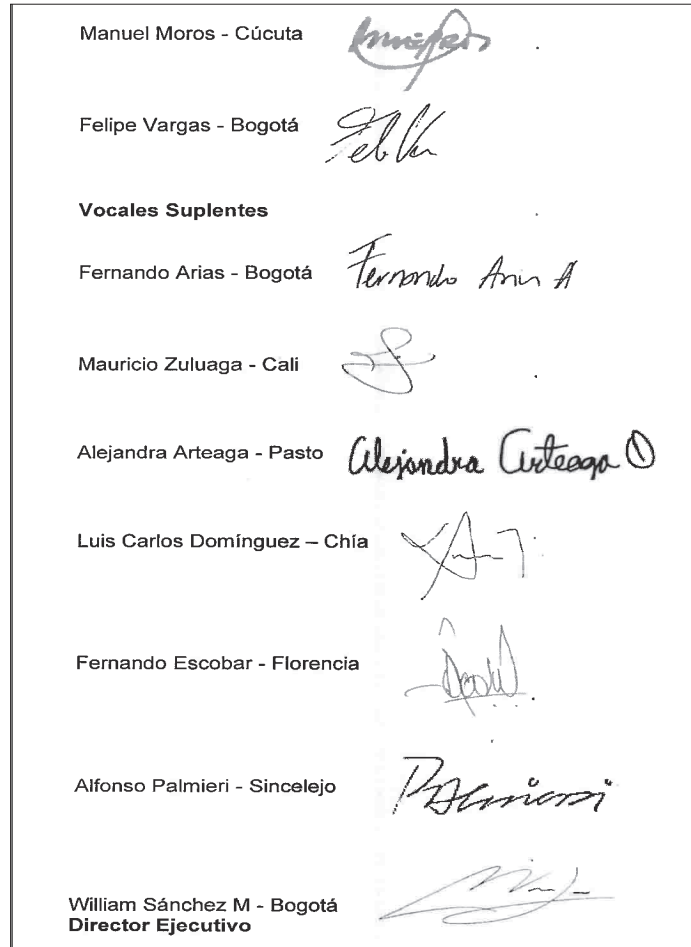 Manuel Moros - Cúcuta
Felipe Vargas - Bogotá
Vocales Suplentes
Fernando Arias - Bogotá Fernando Arias A
Mauricio Zuluaga - Cali
Alejandra Arteaga - Pasto Alejandra Arteaga O
Luis Carlos Domínguez – Chía
Fernando Escobar - Florencia
Alfonso Palmieri - Sincelejo Palmieri
William Sánchez M - Bogotá
Director Ejecutivo